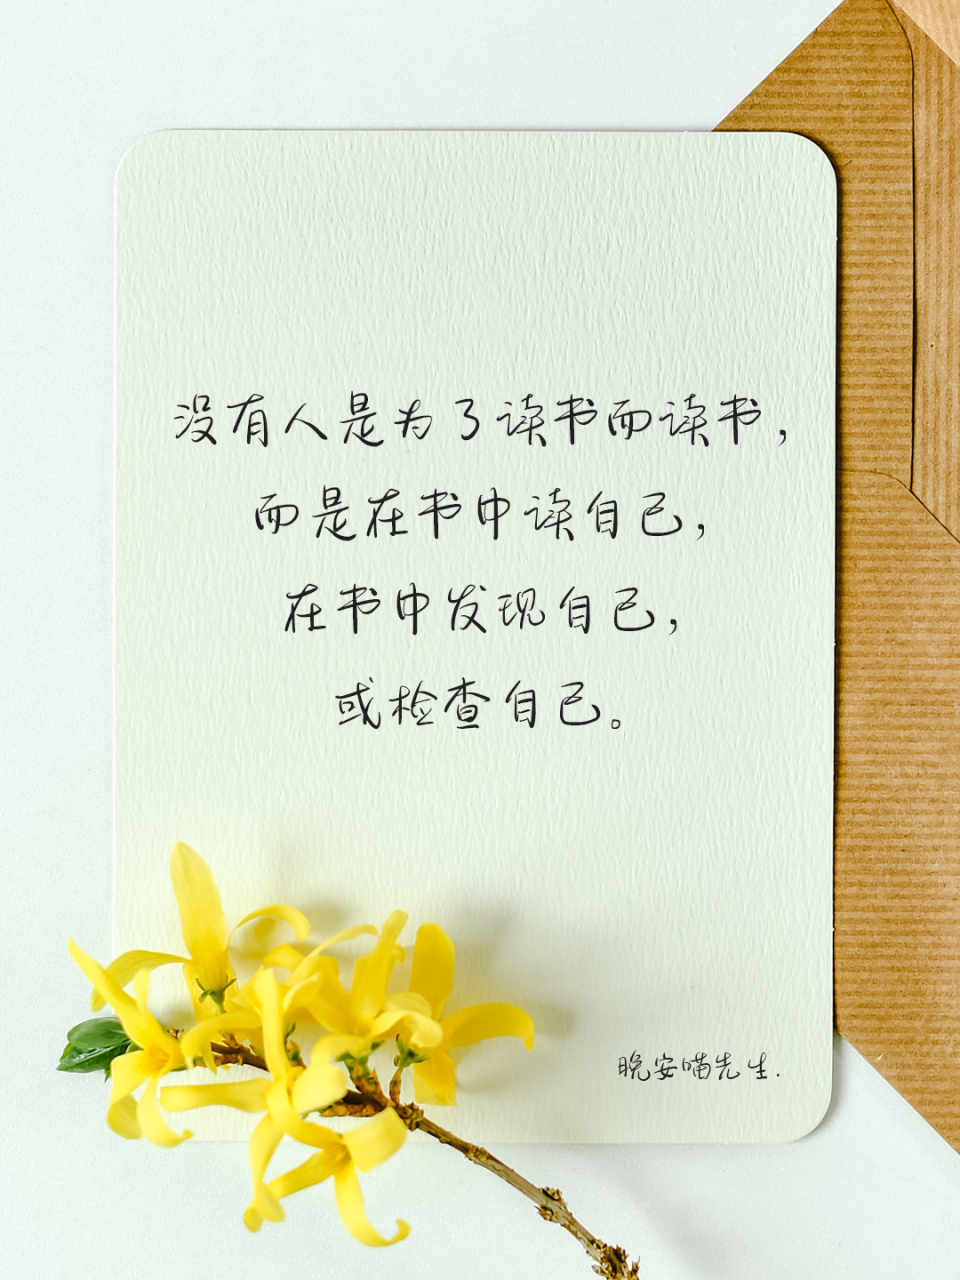 没有人是为了读书而读书，
而是在书中读自己，
在书中发现自己，
或检查自己。
晚安喵先生.